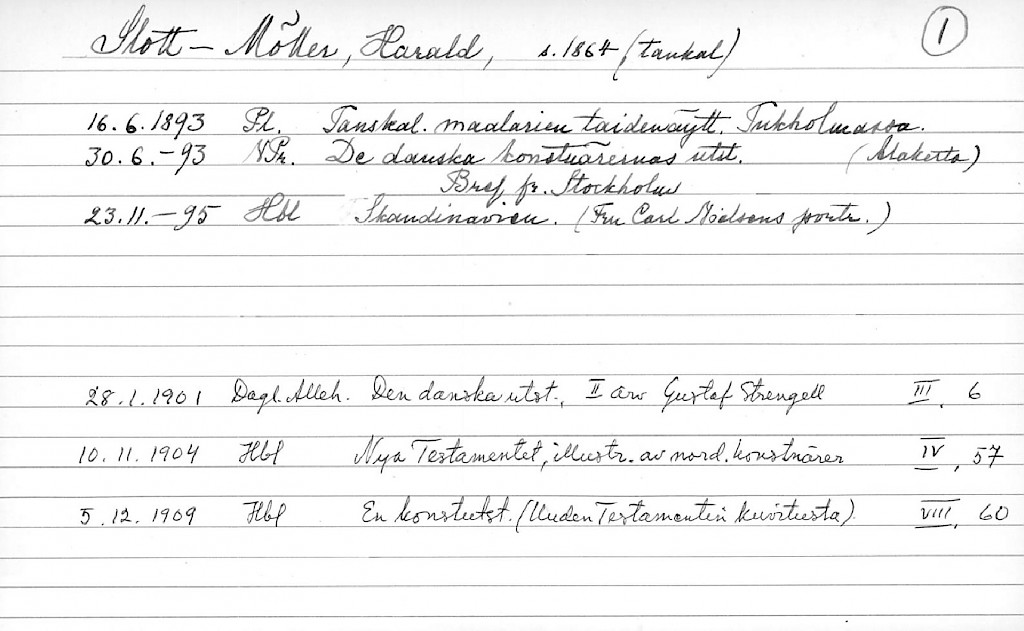 Slott-Möller, Harald, s. 1864 (tanskal) 1
16.6.1893 Pl. Tanskal. maalarien taidenäytt. Tukholmassa.
30.6.-93 NPr. De danska konstnärernas utst. (Alakerta)
Bref fr. Stockholm
23.11.-95 Hbl Skandinavien. (Fru Carl Nielsens portr.)
28.1.1901 Dagl. Alleh. Den danska utst., II av Gustaf Strengell III, 6
10.11.1904 Hbl Nya Testamentet, illustr. av nord. konstnärer IV, 57
5.12.1909 Hbl En konstutst. (Uuden Testamentin kuvitusta) VIII, 60